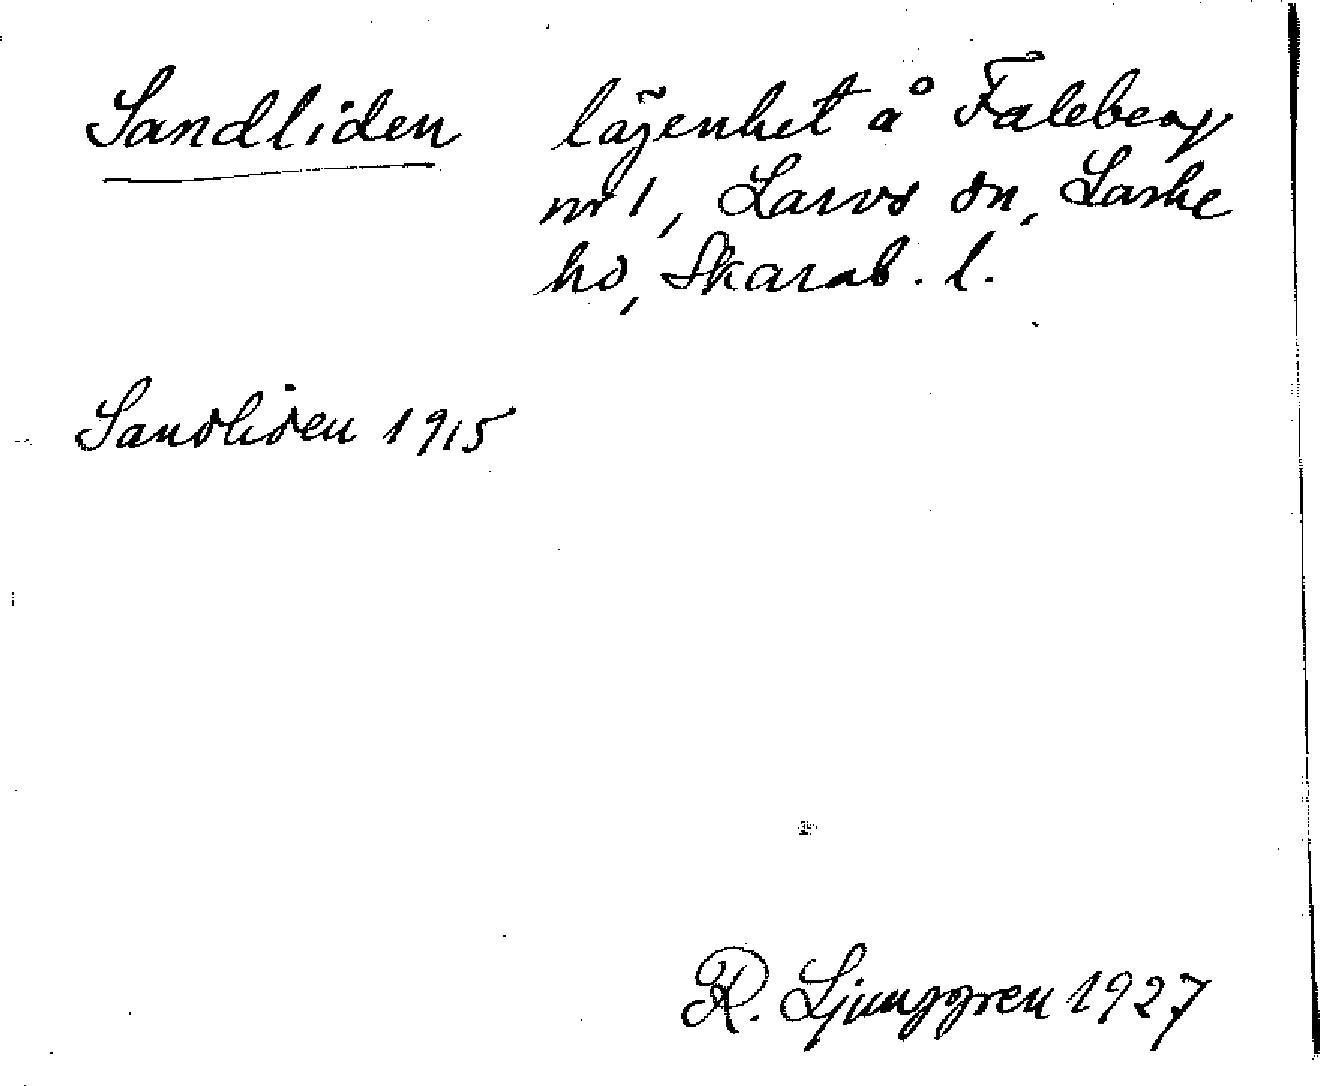 Sandliden lägenhet å Faleberg
nr 1, Larvs sn, Laske
hd, Skarab. l.
Sandliden 1915
R. Ljunggren 1927